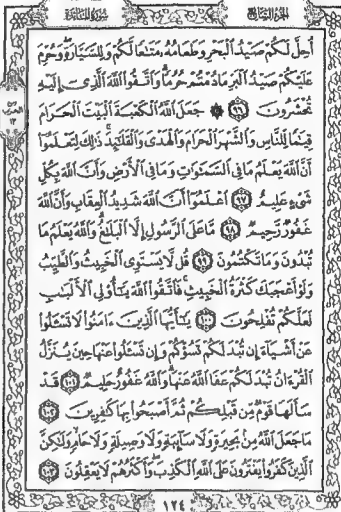 الجزء السابع
سورة المائدة
أُحِلَّ لَكُمْ صَيْدُ الْبَحْرِ وَطَعَامُهُ مَتَاعًا لَّكُمْ وَلِلسَّيَّارَةِ وَحُرِّمَ
عَلَيْكُمْ صَيْدُ الْبَرِّ مَا دُمْتُمْ حُرُمًا وَاتَّقُوا اللَّهَ الَّذِي إِلَيْهِ
تُحْشَرُونَ ٩٦ ۞ جَعَلَ اللَّهُ الْكَعْبَةَ الْبَيْتَ الْحَرَامَ
قِيَامًا لِّلنَّاسِ وَالشَّهْرَ الْحَرَامَ وَالْهَدْيَ وَالْقَلَائِدَ ذَٰلِكَ لِتَعْلَمُوا
أَنَّ اللَّهَ يَعْلَمُ مَا فِي السَّمَاوَاتِ وَمَا فِي الْأَرْضِ وَأَنَّ اللَّهَ بِكُلِّ
شَيْءٍ عَلِيمٌ ٩٧ اعْلَمُوا أَنَّ اللَّهَ شَدِيدُ الْعِقَابِ وَأَنَّ اللَّهَ
غَفُورٌ رَّحِيمٌ ٩٨ مَّا عَلَى الرَّسُولِ إِلَّا الْبَلَاغُ وَاللَّهُ يَعْلَمُ مَا
تُبْدُونَ وَمَا تَكْتُمُونَ ٩٩ قُل لَّا يَسْتَوِي الْخَبِيثُ وَالطَّيِّبُ
وَلَوْ أَعْجَبَكَ كَثْرَةُ الْخَبِيثِ فَاتَّقُوا اللَّهَ يَا أُولِي الْأَلْبَابِ
لَعَلَّكُمْ تُفْلِحُونَ ١٠٠ يَا أَيُّهَا الَّذِينَ ءَامَنُوا لَا تَسْـَٔلُوا
عَنْ أَشْيَاءَ إِن تُبْدَ لَكُمْ تَسُؤْكُمْ وَإِن تَسْـَٔلُوا عَنْهَا حِينَ يُنَزَّلُ
الْقُرْءَانُ تُبْدَ لَكُمْ عَفَا اللَّهُ عَنْهَا وَاللَّهُ غَفُورٌ حَلِيمٌ ١٠١ قَدْ
سَأَلَهَا قَوْمٌ مِّن قَبْلِكُمْ ثُمَّ أَصْبَحُوا بِهَا كَافِرِينَ ١٠٢
مَا جَعَلَ اللَّهُ مِنۢ بَحِيرَةٍ وَلَا سَائِبَةٍ وَلَا وَصِيلَةٍ وَلَا حَامٍ وَلَٰكِنَّ
الَّذِينَ كَفَرُوا يَفْتَرُونَ عَلَى اللَّهِ الْكَذِبَ وَأَكْثَرُهُمْ لَا يَعْقِلُونَ ١٠٣
١٢٤